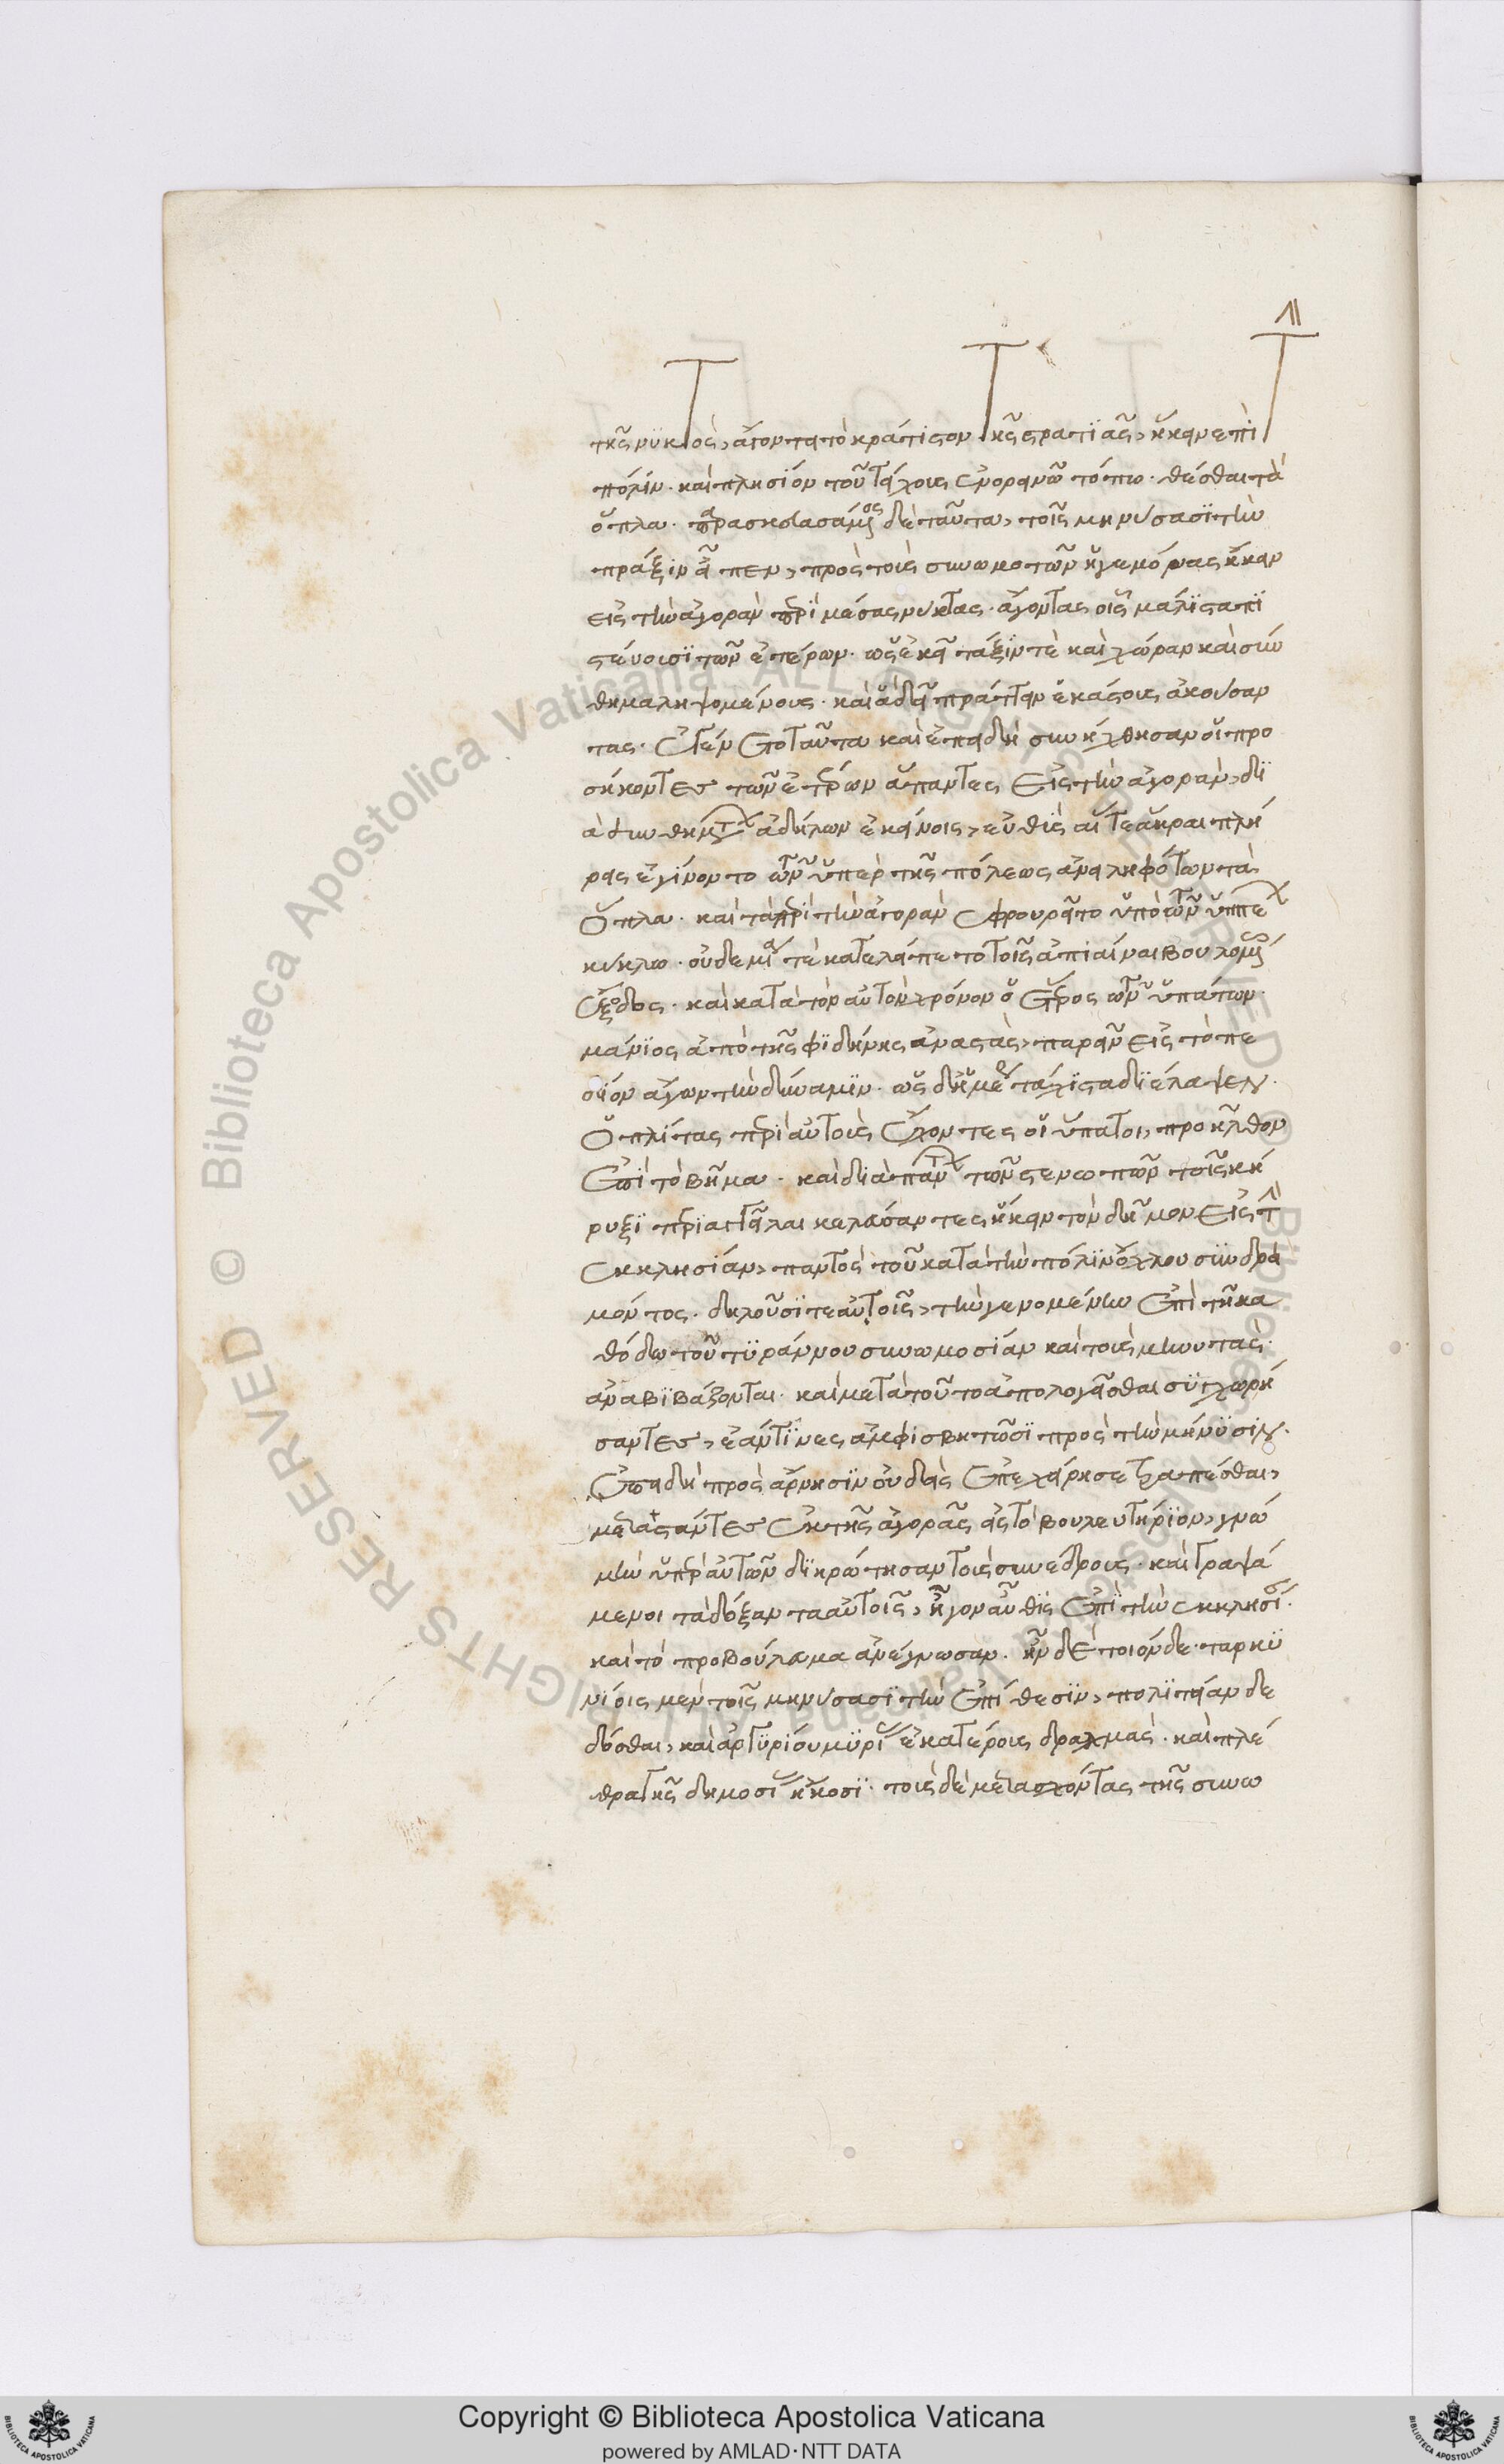 τῆς νϋκτὸς, ἄγοντα τὸ κράτιστον τῆς στρατϊᾶς, ἥκειν ἐπὶ
πόλιν. καὶ πλησίον τοῦ τείχους ἐν ὀρεινῶ τόπω. θέσθαι τὰ
ὅπλα. παρασκευασάμενος δὲ ταῦτα, τοῖς μηνύσασϊ τὴν
πράξιν εἶπεν, πρὸς τοὺς συνωμοτῶν ἡγεμόνας ἥκειν
εἰς τὴν ἀγορὰν περὶ μέσας νύκτας. ἄγοντας οἷς μάλϊστα πϊ
στεύουσϊ τῶν ἑτέρων. ὡς ἐκεῖ τάξϊν τὲ καὶ χώραν καὶ σύν
θημα ληψομένους. καὶ ἃ δεῖ πράττειν ἑκάστους ἀκουσον
τας. ἐγένετο ταῦτα καὶ ἐπειδὴ συνήχθησαν οἱ προ
σήκοντες τῶν ἑτέρων ἅπαντες εἰς τὴν ἀγορὰν, δϊ
ὰ συνθημάτων ἀδήλων ἐκείνοις, εὐθὺς αἵ τε ἄκραι πλή
ρεις ἐγίνοντο τῶν ὑπὲρ τῆς πόλεως ἀνειληφότων τὰ
ὅπλα. καὶ τὰ περὶ τὴν ἀγορὰν ἐφρουρεῖτο ὑπὸ τῶν ἱππέων
κύκλω. οὐδεμία τὲ κατελείπετο τοῖς ἀπιέναι βουλομένοις
ἔξοδος. καὶ κατὰ τὸν αὐτὸν χρόνον ὁ ἕτερος τῶν ὑπάτων
μάνϊος ἀπὸ τῆς φϊδήνης ἀναστὰς, παρῆν εἰς τὸ πε
δίον ἄγων τὴν δύναμϊν. ὡς δὲ ἡμέρα τάχϊστα δϊέλαμψεν.
ὁπλίτας περὶ αὐτοὺς ἔχοντες οἱ ὕπατοι, προῆλθον
ἐπὶ τὸ βῆμα. καὶ διὰ πάντων τῶν στενωπῶν τοῖς κή
ρυξϊ περϊαγγεῖλαι κελεύσαντες ἥκειν τὸν δῆμον εἰς τὴν
ἐκκλησίαν, παντὸς τοῦ κατὰ τὴν πόλϊν ὄχλου συνδρα
μόντος. δηλοῦσϊ τε αὐτοῖς, τὴν γενομένην ἐπὶ τῆ κα
θόδω τοῦ τϋράννου συνωμοσίαν καὶ τοὺς μηνυτὰς
ἀναβϊβάζονται. καὶ μετὰ τοῦτο ἀπολογεῖσθαι συγχωρή
σαντες, ἐάν τϊνες ἀμφισβητῶσϊ πρὸς τὴν μήνϋσιν.
ἐπειδὴ πρὸς ἄρνησϊν οὐδεὶς ἐπεχείρησε τραπέσθαι,
μεταστάντες ἐκ τῆς ἀγορᾶς εἰς τὸ βουλευτήρϊον, γνώ
μην ὑπὲρ αὐτῶν δϊηρώτησαν τοὺς συνέδρους. καὶ γραψά
μενοι τὰ δόξαντα αὐτοῖς, ἧκον αὖθϊς ἐπϊ τὴν ἐκκλησίαν.
καὶ τὸ προβούλευμα ἀνέγνωσαν. ἦν δὲ τοιόνδε. ταρκϋ
νίοις μὲν τοῖς μηνύσασϊ τὴν ἐπίθεσϊν, πολϊτείαν δε
δόσθαι, καὶ ἀργϋρίου μϋρίας ἑκατέροις δραχμὰς. καὶ πλέ
θρα τῆς δημοσίας εἴκοσϊ. τοὺς δὲ μετασχόντας τῆς συνω